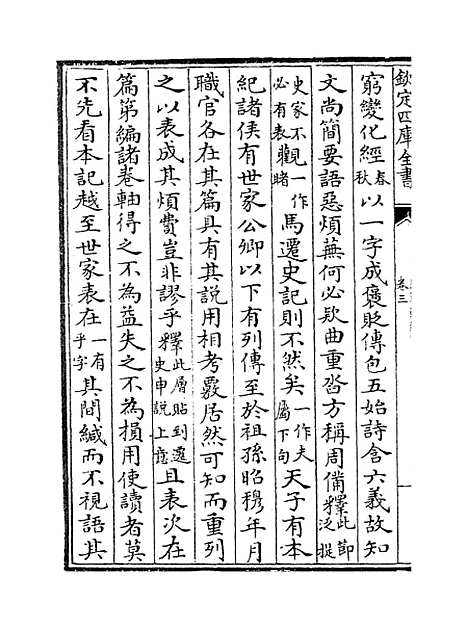 欽定四庫全書
卷三
窮變化經春秋以一字成褒貶傳包五始詩含六義故知
文尚簡要語惡煩蕪何必欵曲重沓方稱周備釋此節泛提
史家不必有表觀一作睹馬遷史記則不然矣一作夫屬下句天子有本
紀諸侯有世家公卿以下有列傳至於祖孫昭穆年月
職官各在其篇具有其說用相考覈居然可知而重列
之以表成其煩費豈非謬乎釋此層貼到遷史申說上意且表次在
篇第編諸卷軸得之不為益失之不為損用使讀者莫
不先看本記越至世家表在一有乎字其間緘而不視語其